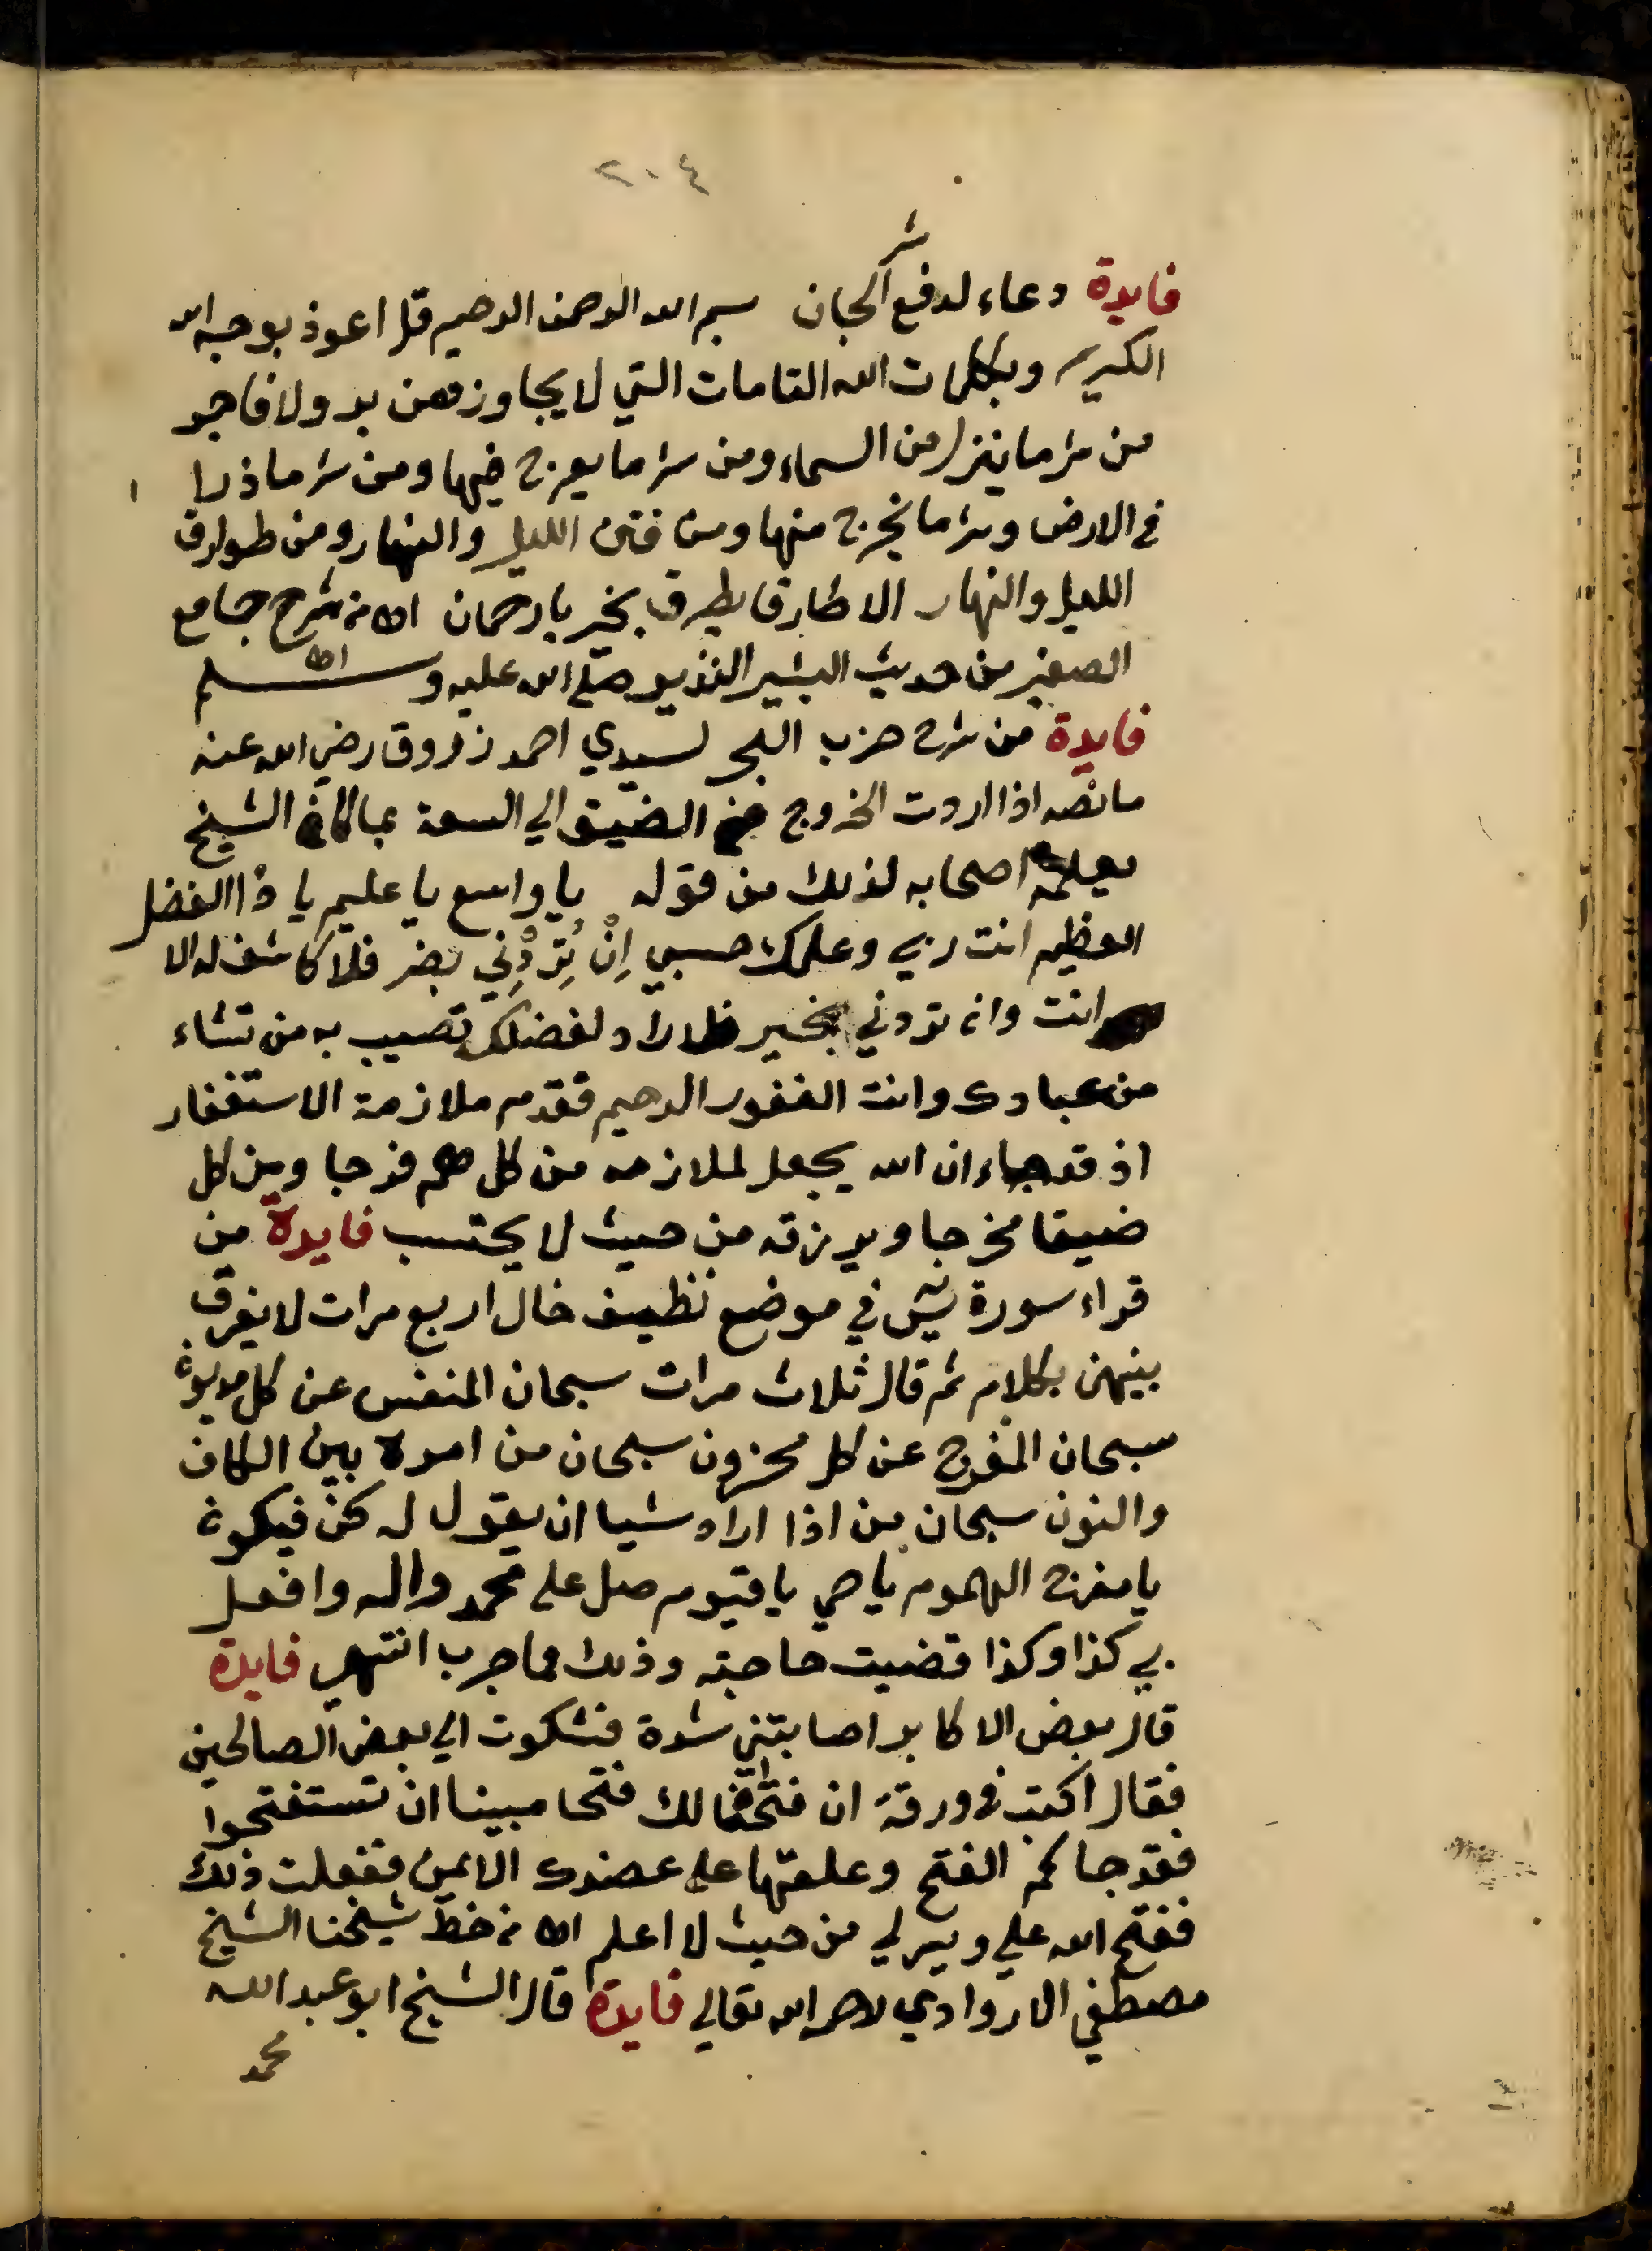 ٢٠٤
شر
فايدة دعاء لدفع الجان بسم الله الرحمن الرحيم قل اعوذ بوجه الله
الكريم وبكلمات الله التامات التي لا يجاوزهن بر ولا فاجر
من شر ما ينزل من السماء ومن شر ما يعرج فيها ومن شر ما ذرا
في الارض وشر ما يخرج منها ومن فتن الليل والنهار ومن طوارق
الليل والنهار الا طارقا يطرق بخير يا رحمان اه من شرح جامع
الصغير من حديث البشير النذير صلى الله عليه وسلم
فايدة من شرح حزب البحر لسيدي احمد زروق رضي الله عنه
ما نصه اذا اردت الخروج من الضيق الي السعة بما كان الشيخ
يعلمه اصحابه لذلك من قوله يا واسع يا عليم يا ذا الفضل
العظيم انت ربي وعلمك حسبي اِنْ تُرِدْنِي بضر فلا كاشف له الا
انت وان تردني بخير فلا راد لفضلك تصيب به من تشاء
من عبادك وانت الغفور الرحيم فقدم ملازمة الاستغفار
اذ قد جاء ان الله يجعل لملازمه من كل هم فرجا ومن كل
ضيقا مخرجا ويرزقه من حيث لا يحتسب فايدة من
قراء سورة يس في موضع نظيف خال اربع مرات لا يفرق
بينهن بكلام ثم قال ثلاث مرات سبحان المنفس عن كل مديون
سبحان المفرج عن كل محزون سبحان من امره بين الكاف
والنون سبحان من اذا اراد شيا ان يقول له كن فيكون
يا مفرج الهموم يا حي يا قيوم صل على محمد واله وافعل
بي كذا وكذا قضيت حاجته وذلك مما جرب انتهي فايدة
قال بعض الاكابر اصابتني شدة فشكوت الي بعض الصالحين
فقال اكتب في ورقة ان فتحنا لك فتحا مبينا ان تستفتحوا
فقد جاكم الفتح وعلقها على عضدك الايمن ففعلت ذلك
ففتح الله علي ويسر لي من حيث لا اعلم اه من خط شيخنا الشيخ
مصطفي الاروادي رحمه الله تعالي فايدة قال الشيخ ابو عبد الله
محمد